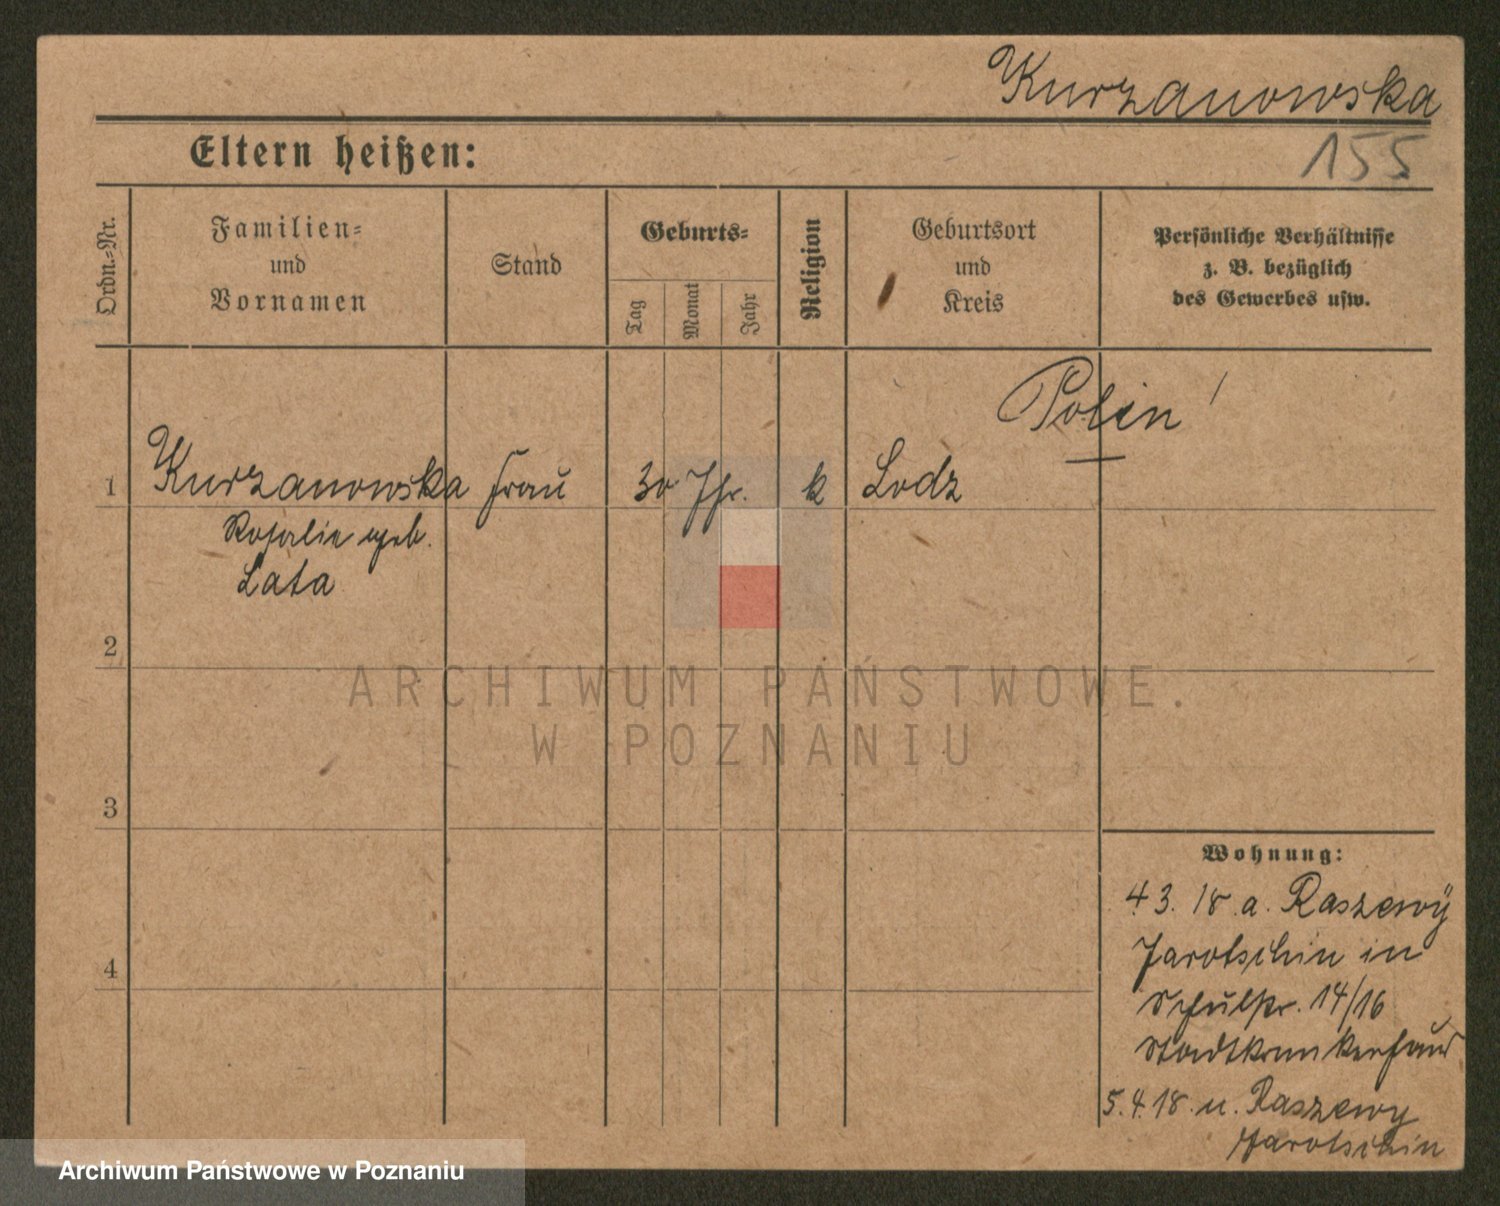 Kurzanowska
155
Eltern heißen:
Ordn.-Nr.
Familien-
und
Vornamen
Stand
Geburts-
Tag
Monat
Jahr
Religion
Geburtsort
und
Kreis
Persönliche Verhältnisse
z. B. bezüglich
des Gewerbes usw.
Polen
1 Kurzanowska Frau 30 Jhr. k Lodz
Rosalie geb.
Lata
2
3
4
ARCHIWUM PAŃSTWOWE
W POZNANIU
Wohnung:
4 3. 18. a. Raszewy
Jarotschin in
Schulstr. 14/16
Stadtkrankenhaus
5. 4. 18. n. Raszewy
Jarotschin
Archiwum Państwowe w Poznaniu